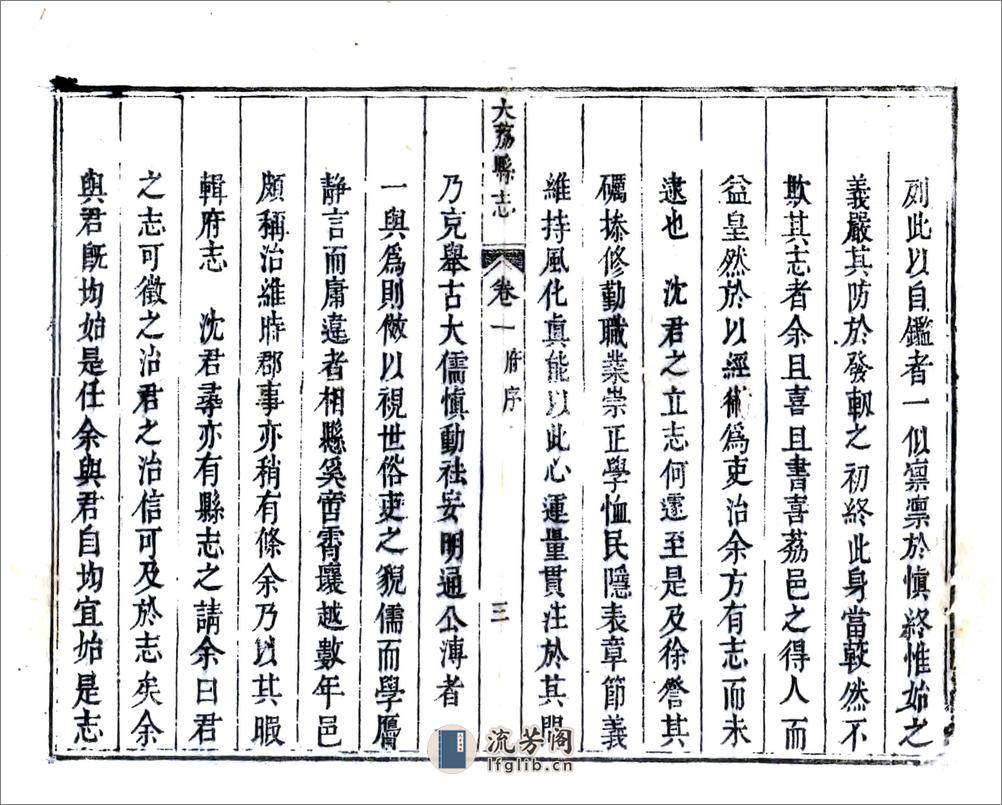 列此以自鑑者一似禀禀於愼終惟始之
義嚴其防於發軔之初終此身當較然不
欺其志者余且喜且書喜荔邑之得人而
益皇然於以經術爲吏治余方有志而未
逮也 沈君之立志何遽至是及徐詧其
礪操修勤職業崇正學恤民隱表章節義
維持風化眞能以此心運量貫注於其間
大荔縣志 卷一 府序 三
乃克舉古大儒愼動祛妄明通公溥者
一與爲則倣以視世俗吏之貌儒而學膺
靜言而庸違者相縣奚啻霄壤越數年邑
頗稱治維時郡事亦稍有條余乃以其暇
輯府志 沈君尋亦有縣志之請余曰君
之志可徵之治君之治信可及於志矣余
與君旣均始是任余與君自均宜始是志
流芳阁
lfglib.cn